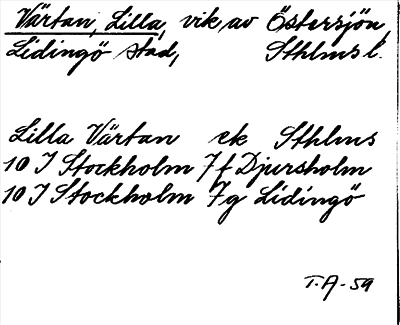 Värtan, Lilla, vik av Östersjön,
Lidingö stad, Sthlms l.
Lilla Värtan ek Sthlms
10 I Stockholm 7f Djursholm
10 I Stockholm 7g Lidingö
T.A-59